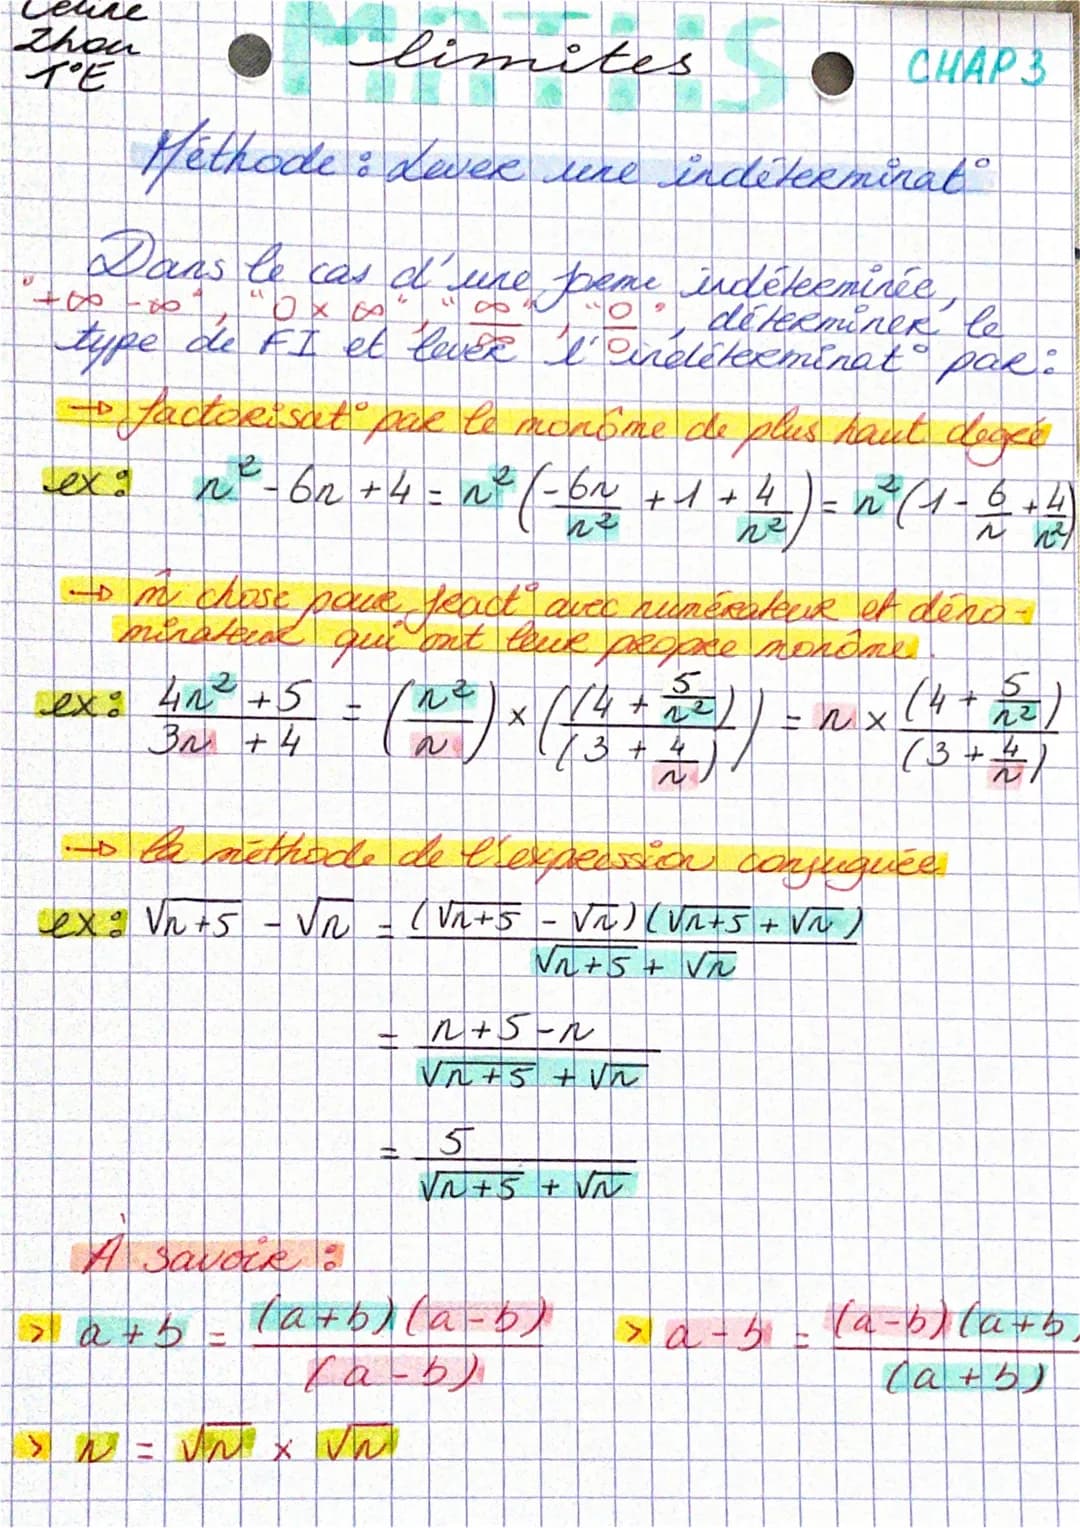 Zhou
T°E
MATHS
limites
CHAP 3
Méthode : Lever une indéterminat°
Dans le cas d'une forme indéterminée,
"+∞ -∞", "0 x ∞", "∞/∞", "0/0", déterminer le
type de FI et lever l'indéterminat° par :
→ factorisat° par le monôme de plus haut degré
ex : n² - 6n + 4 = n² (-6n/n² + 1 + 4/n²) = n² (1 - 6/n + 4/n²)
→ m̂ chose pour fract° avec numérateur et déno-
minateur qui ont leur propre monôme.
ex : (4n² + 5)/(3n + 4) = (n²/n) x ((4 + 5/n²)/(3 + 4/n)) = n x (4 + 5/n²)/(3 + 4/n)
→ la méthode de l'expression conjuguée
ex : √(n+5) - √n = (√(n+5) - √n)(√(n+5) + √n)/(√(n+5) + √n)
= (n + 5 - n)/(√(n+5) + √n)
= 5/(√(n+5) + √n)
À savoir :
> a + b = (a+b)(a-b)/(a-b) > a - b = (a-b)(a+b)/(a+b)
> n = √n x √n